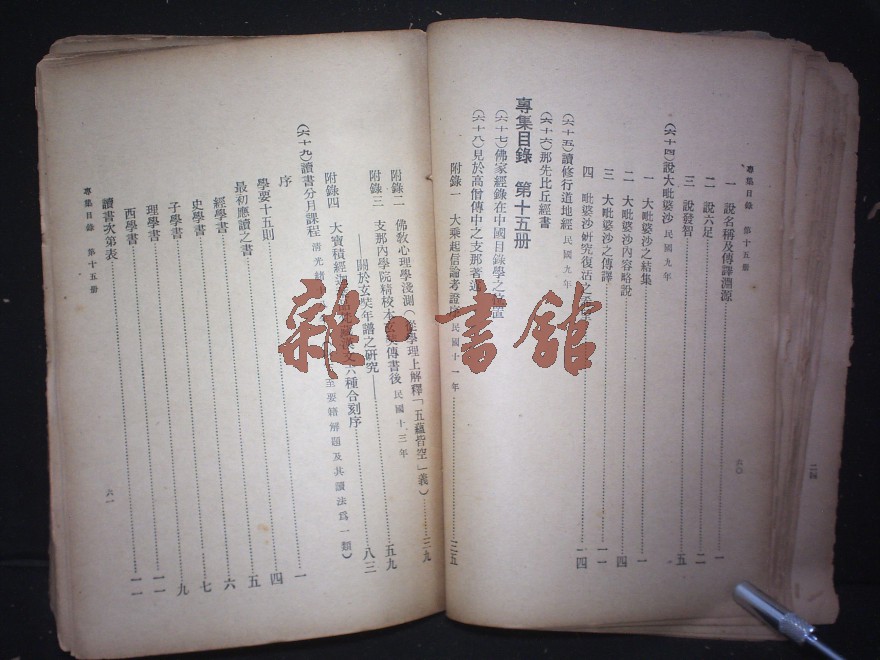 專集目錄 第十五册
六〇
一 說名稱及傳譯淵源……一
二 說六足……二
三 說發智……五
(六十四)說大毗婆沙 民國九年
一 大毗婆沙之結集……一
二 大毗婆沙內容略說……四
三 大毗婆沙之傳譯……一一
四 毗婆沙研究復活之……一四
(六十五)讀修行道地經 民國九年
(六十六)那先比丘經書
專集目錄 第十五册
(六十七)佛家經錄在中國目錄學之位置
(六十八)見於高僧傳中之支那著述
附錄一 大乘起信論考證序 民國十一年……三五
附錄二 佛教心理學淺測(從學理上解釋「五蘊皆空」義)……三九
附錄三 支那內學院精校本玄奘傳書後 民國十三年……五九
——關於玄奘年譜之研究——
附錄四 大寶積經迦葉品梵藏漢文六種合刻序……八三
(六十九)讀書分月課程 清光緒 至要籍解題及其讀法爲一類)
序……一
學要十五則……四
最初應讀之書……五
經學書……六
史學書……七
子學書……九
理學書……一一
西學書……一一
讀書次第表
專集目錄 第十五册
六一
二四
雜·書館